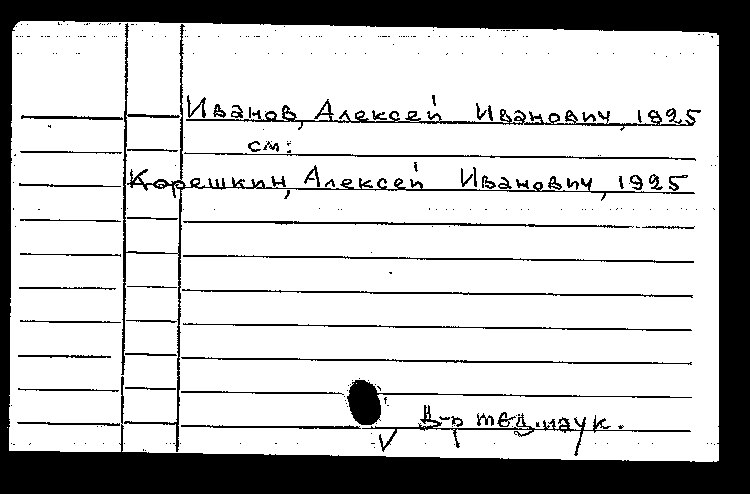 Иванов, Алексей Иванович, 1925
см:
Корешкин, Алексей Иванович, 1925
Д-р мед. наук.